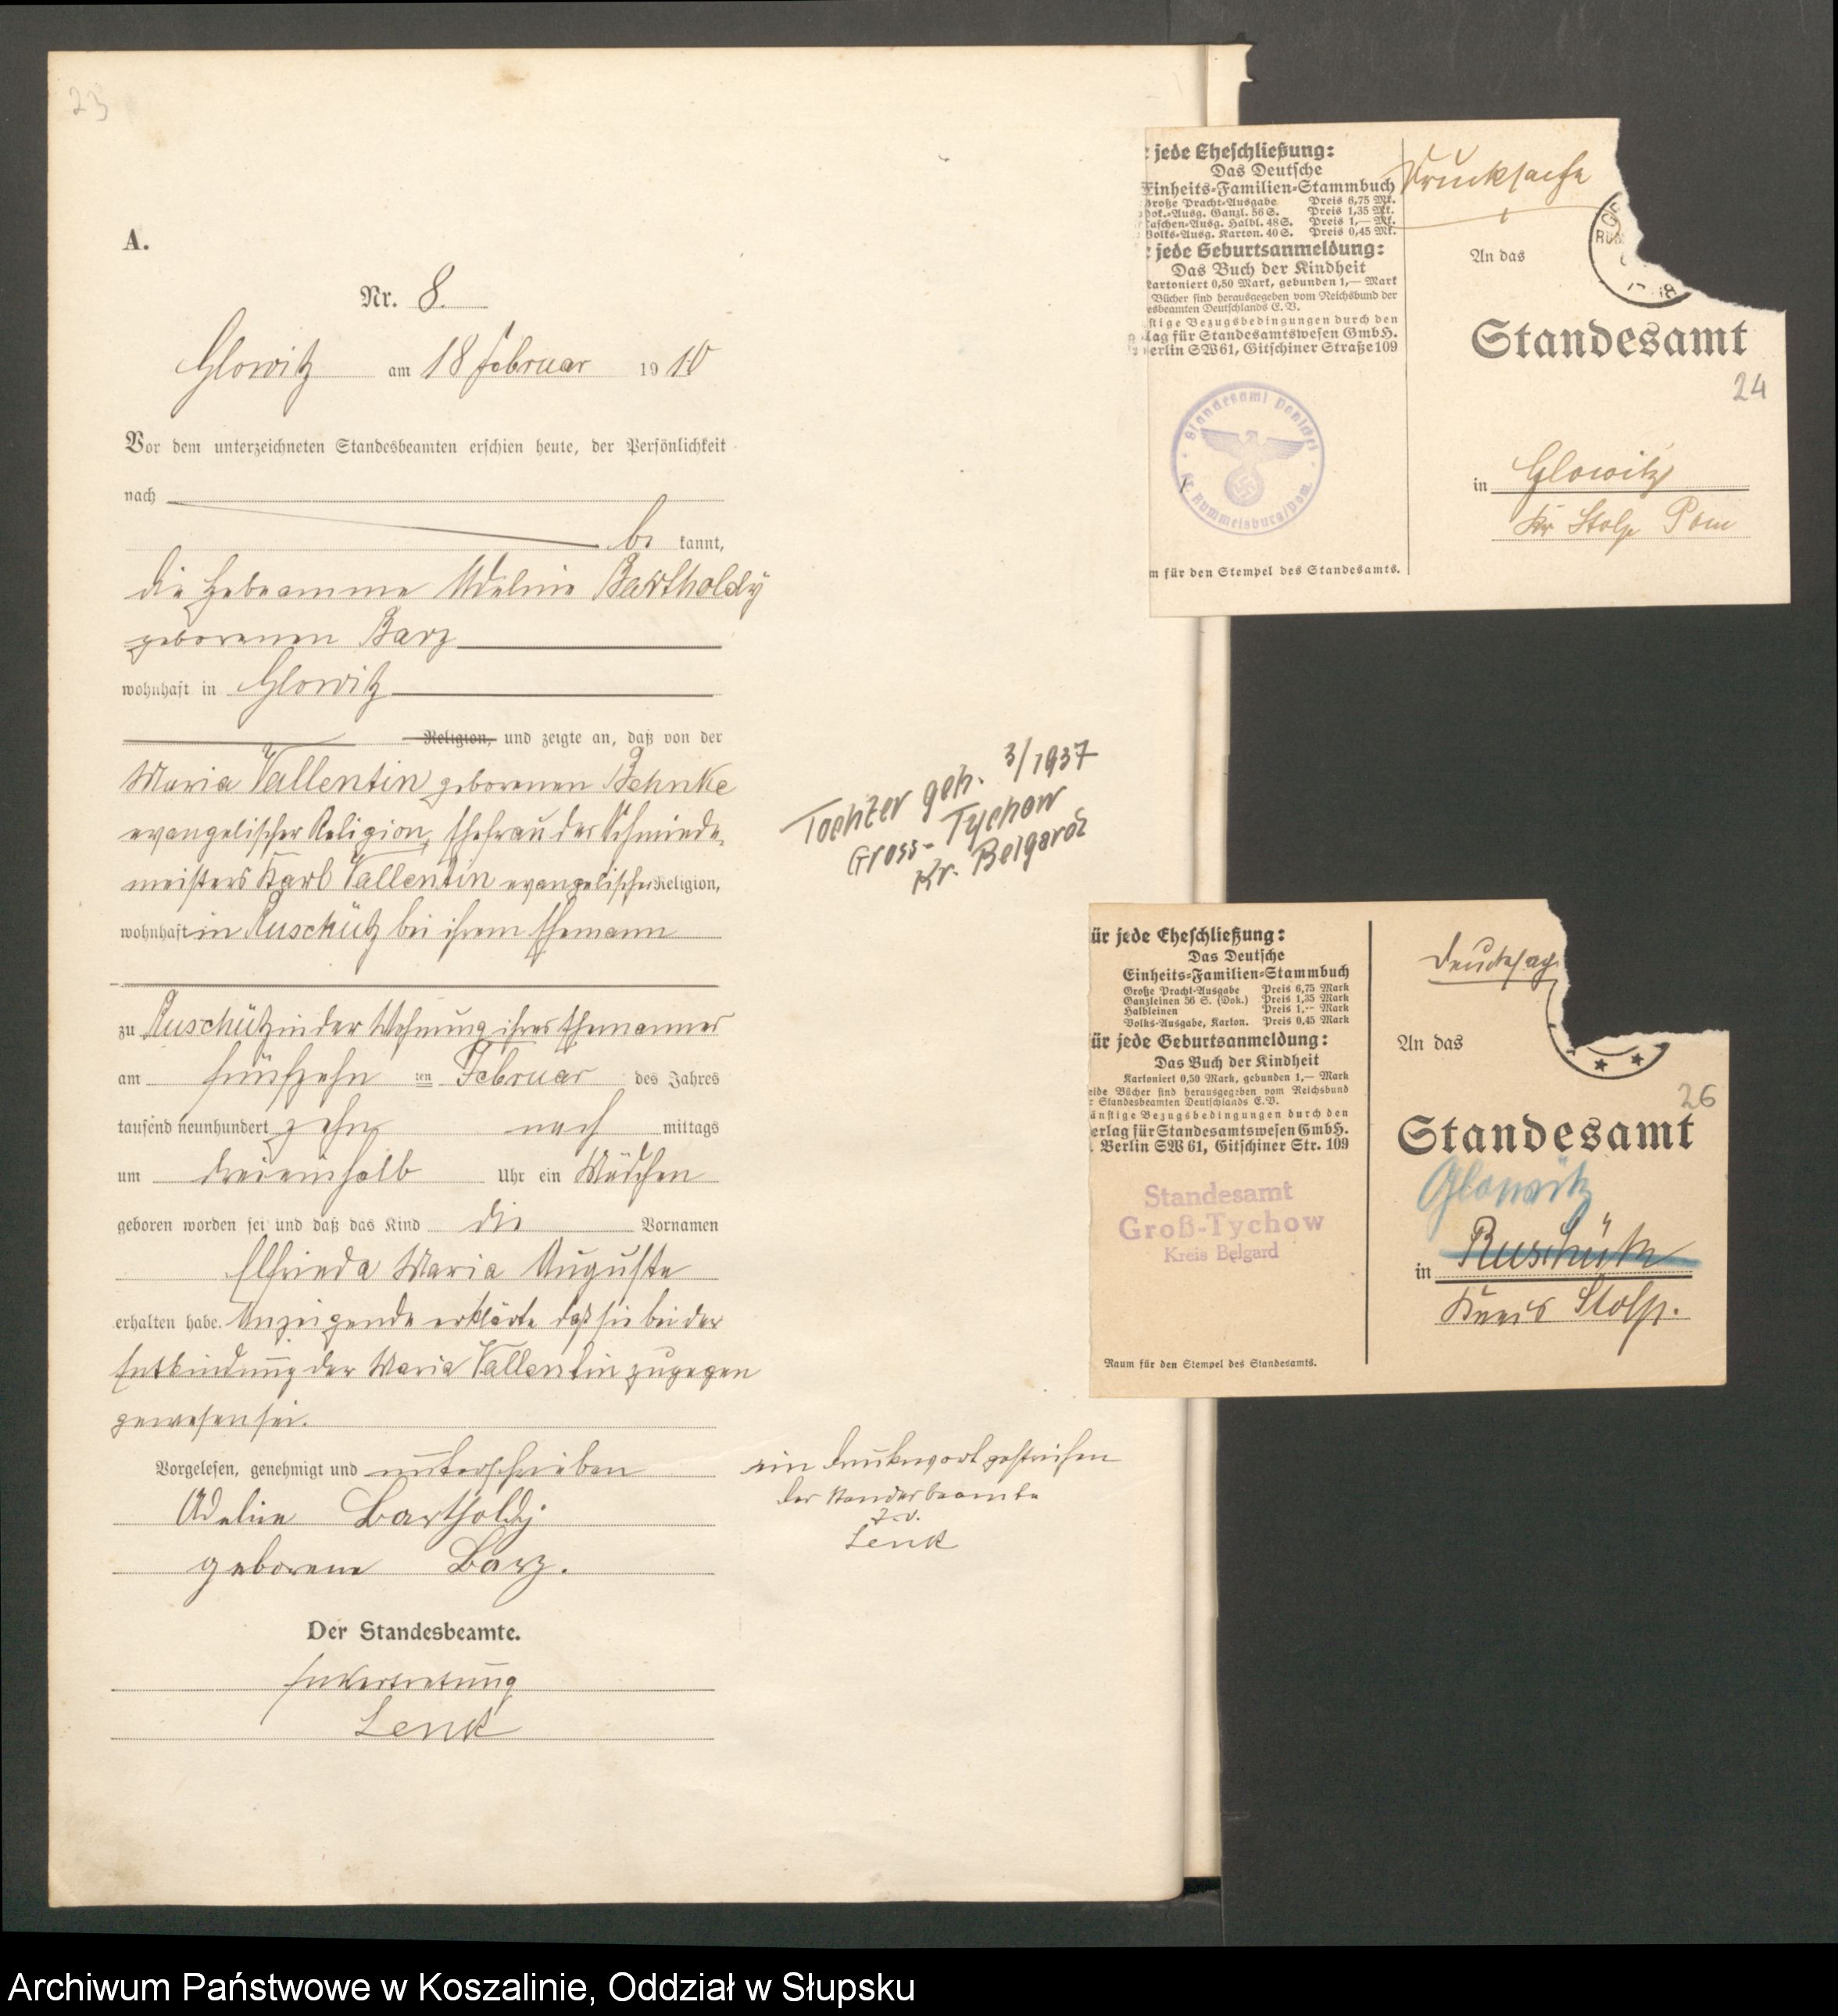 23
A.
Nr. 8.
Glowitz am 18 Februar 1910
Vor dem unterzeichneten Standesbeamten erschien heute, der Persönlichkeit
nach
be kannt,
die Hebeamme Adeline Bartholdy
geborenen Barz
wohnhaft in Glowitz
Religion, und zeigte an, daß von der
Maria Vallentin geborenen Behnke
evangelischer Religion, Ehefrau des Schmiede-
meisters Karl Vallentin evangelischer Religion,
wohnhaft in Ruschütz bei ihrem Ehemann
zu Ruschütz in der Wohnung ihres Ehemannes
am fünfzehn ten Februar des Jahres
tausend neunhundert zehn nach mittags
um dreieinhalb Uhr ein Mädchen
geboren worden sei und daß das Kind die Vornamen
Elfrieda Maria Auguste
erhalten habe. Anzeigende erklärte daß sie bei der
Entbindung der Maria Vallentin zugegen
gewesen sei.
Vorgelesen, genehmigt und unterschrieben
Adeline Bartholdy
geborene Barz.
Der Standesbeamte.
In Vertretung
Lenk
Tochter geb. 3/1937
Gross-Tychow
Kr. Belgard
ein Druckwort gestrichen
der Standesbeamte
I. V.
Lenk
: jede Eheschließung:
Das Deutsche
Einheits-Familien-Stammbuch
Große Pracht-Ausgabe Preis 6,75 Mk.
Dok.-Ausg. Ganzl. 56 S. Preis 1,35 Mk.
Taschen-Ausg. Halbl. 48 S. Preis 1,— Mk.
Volks-Ausg. Karton. 40 S. Preis 0,45 Mk.
: jede Geburtsanmeldung:
Das Buch der Kindheit
kartoniert 0,50 Mark, gebunden 1,— Mark
Bücher sind herausgegeben vom Reichsbund der
esbeamten Deutschlands E. V.
stige Bezugsbedingungen durch den
lag für Standesamtswesen GmbH.
erlin SW61, Gitschiner Straße 109
Standesamt
Kr. Rummelsburg/Pom.
m für den Stempel des Standesamts.
Drucksache
An das
Standesamt
24
in Glowitz
Kr Stolp Pom
ür jede Eheschließung:
Das Deutsche
Einheits-Familien-Stammbuch
Große Pracht-Ausgabe Preis 6,75 Mark
Ganzleinen 56 S. (Dok.) Preis 1,35 Mark
Halbleinen Preis 1,-- Mark
Volks-Ausgabe, Karton. Preis 0,45 Mark
ür jede Geburtsanmeldung:
Das Buch der Kindheit
Kartoniert 0,50 Mark, gebunden 1,— Mark
eide Bücher sind herausgegeben vom Reichsbund
r Standesbeamten Deutschlands E. V.
ünstige Bezugsbedingungen durch den
erlag für Standesamtswesen GmbH.
Berlin SW 61, Gitschiner Str. 109
Standesamt
Groß-Tychow
Kreis Belgard
Raum für den Stempel des Standesamts.
Drucksach
An das
26
Standesamt
Glowitz
in Ruschütz
Kreis Stolp.
Archiwum Państwowe w Koszalinie, Oddział w Słupsku